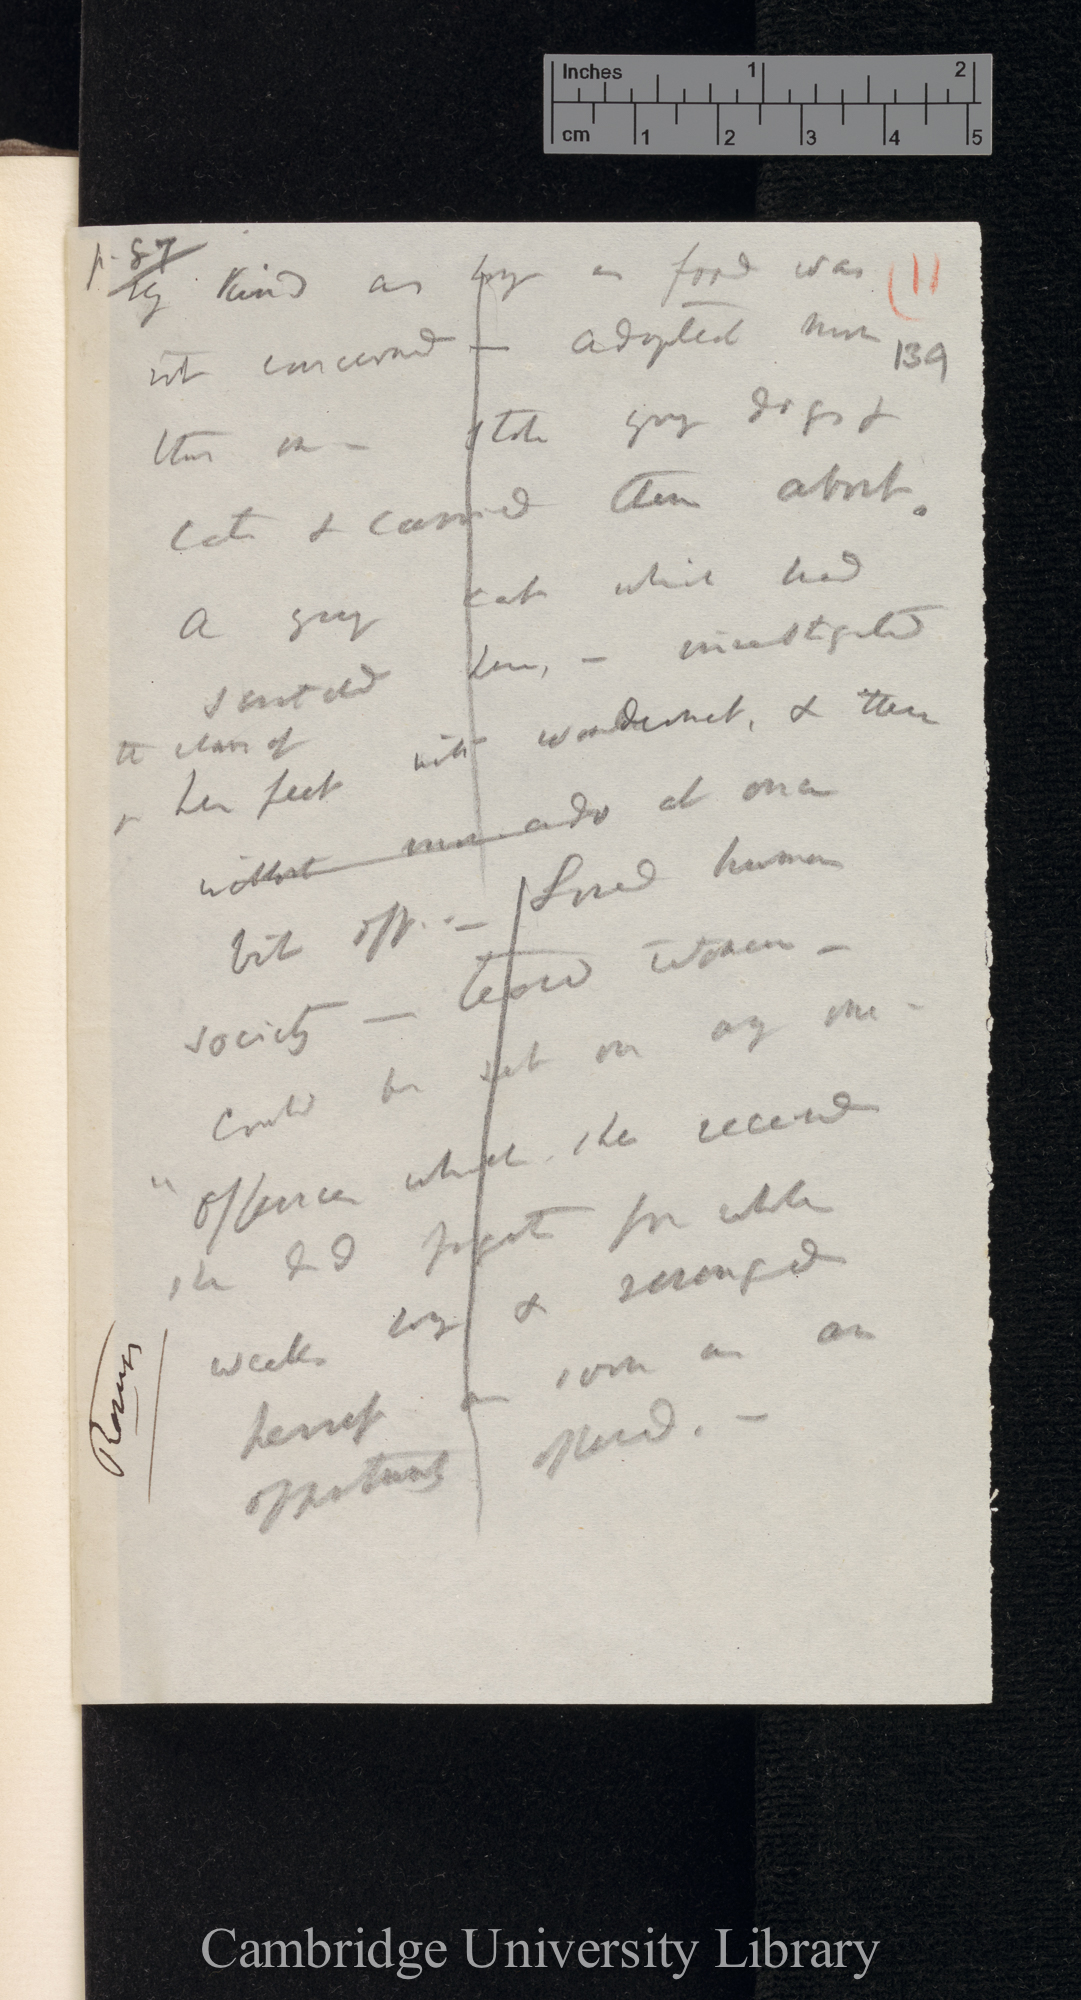 Inches 1 2
cm 1 2 3 4 5
p. 87
kind as long as food was (11
not concerned — adopted more 139
than one — stole young dogs &
cats & carried them about.
A young cat which had
scratched her, — investigated
the claws of
her feet with wonderment, & then
without more ado at once
bit off. — Loved human
society — teased women —
could be set on any one —
"Offence which she received
she did forget for whole
weeks long & revenged
herself as soon as an
opportunity offered. —
Cambridge University Library